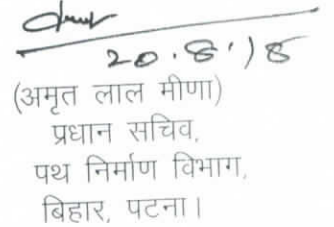 20.8.18
(अमृत लाल मीणा)
प्रधान सचिव,
पथ निर्माण विभाग,
बिहार, पटना।